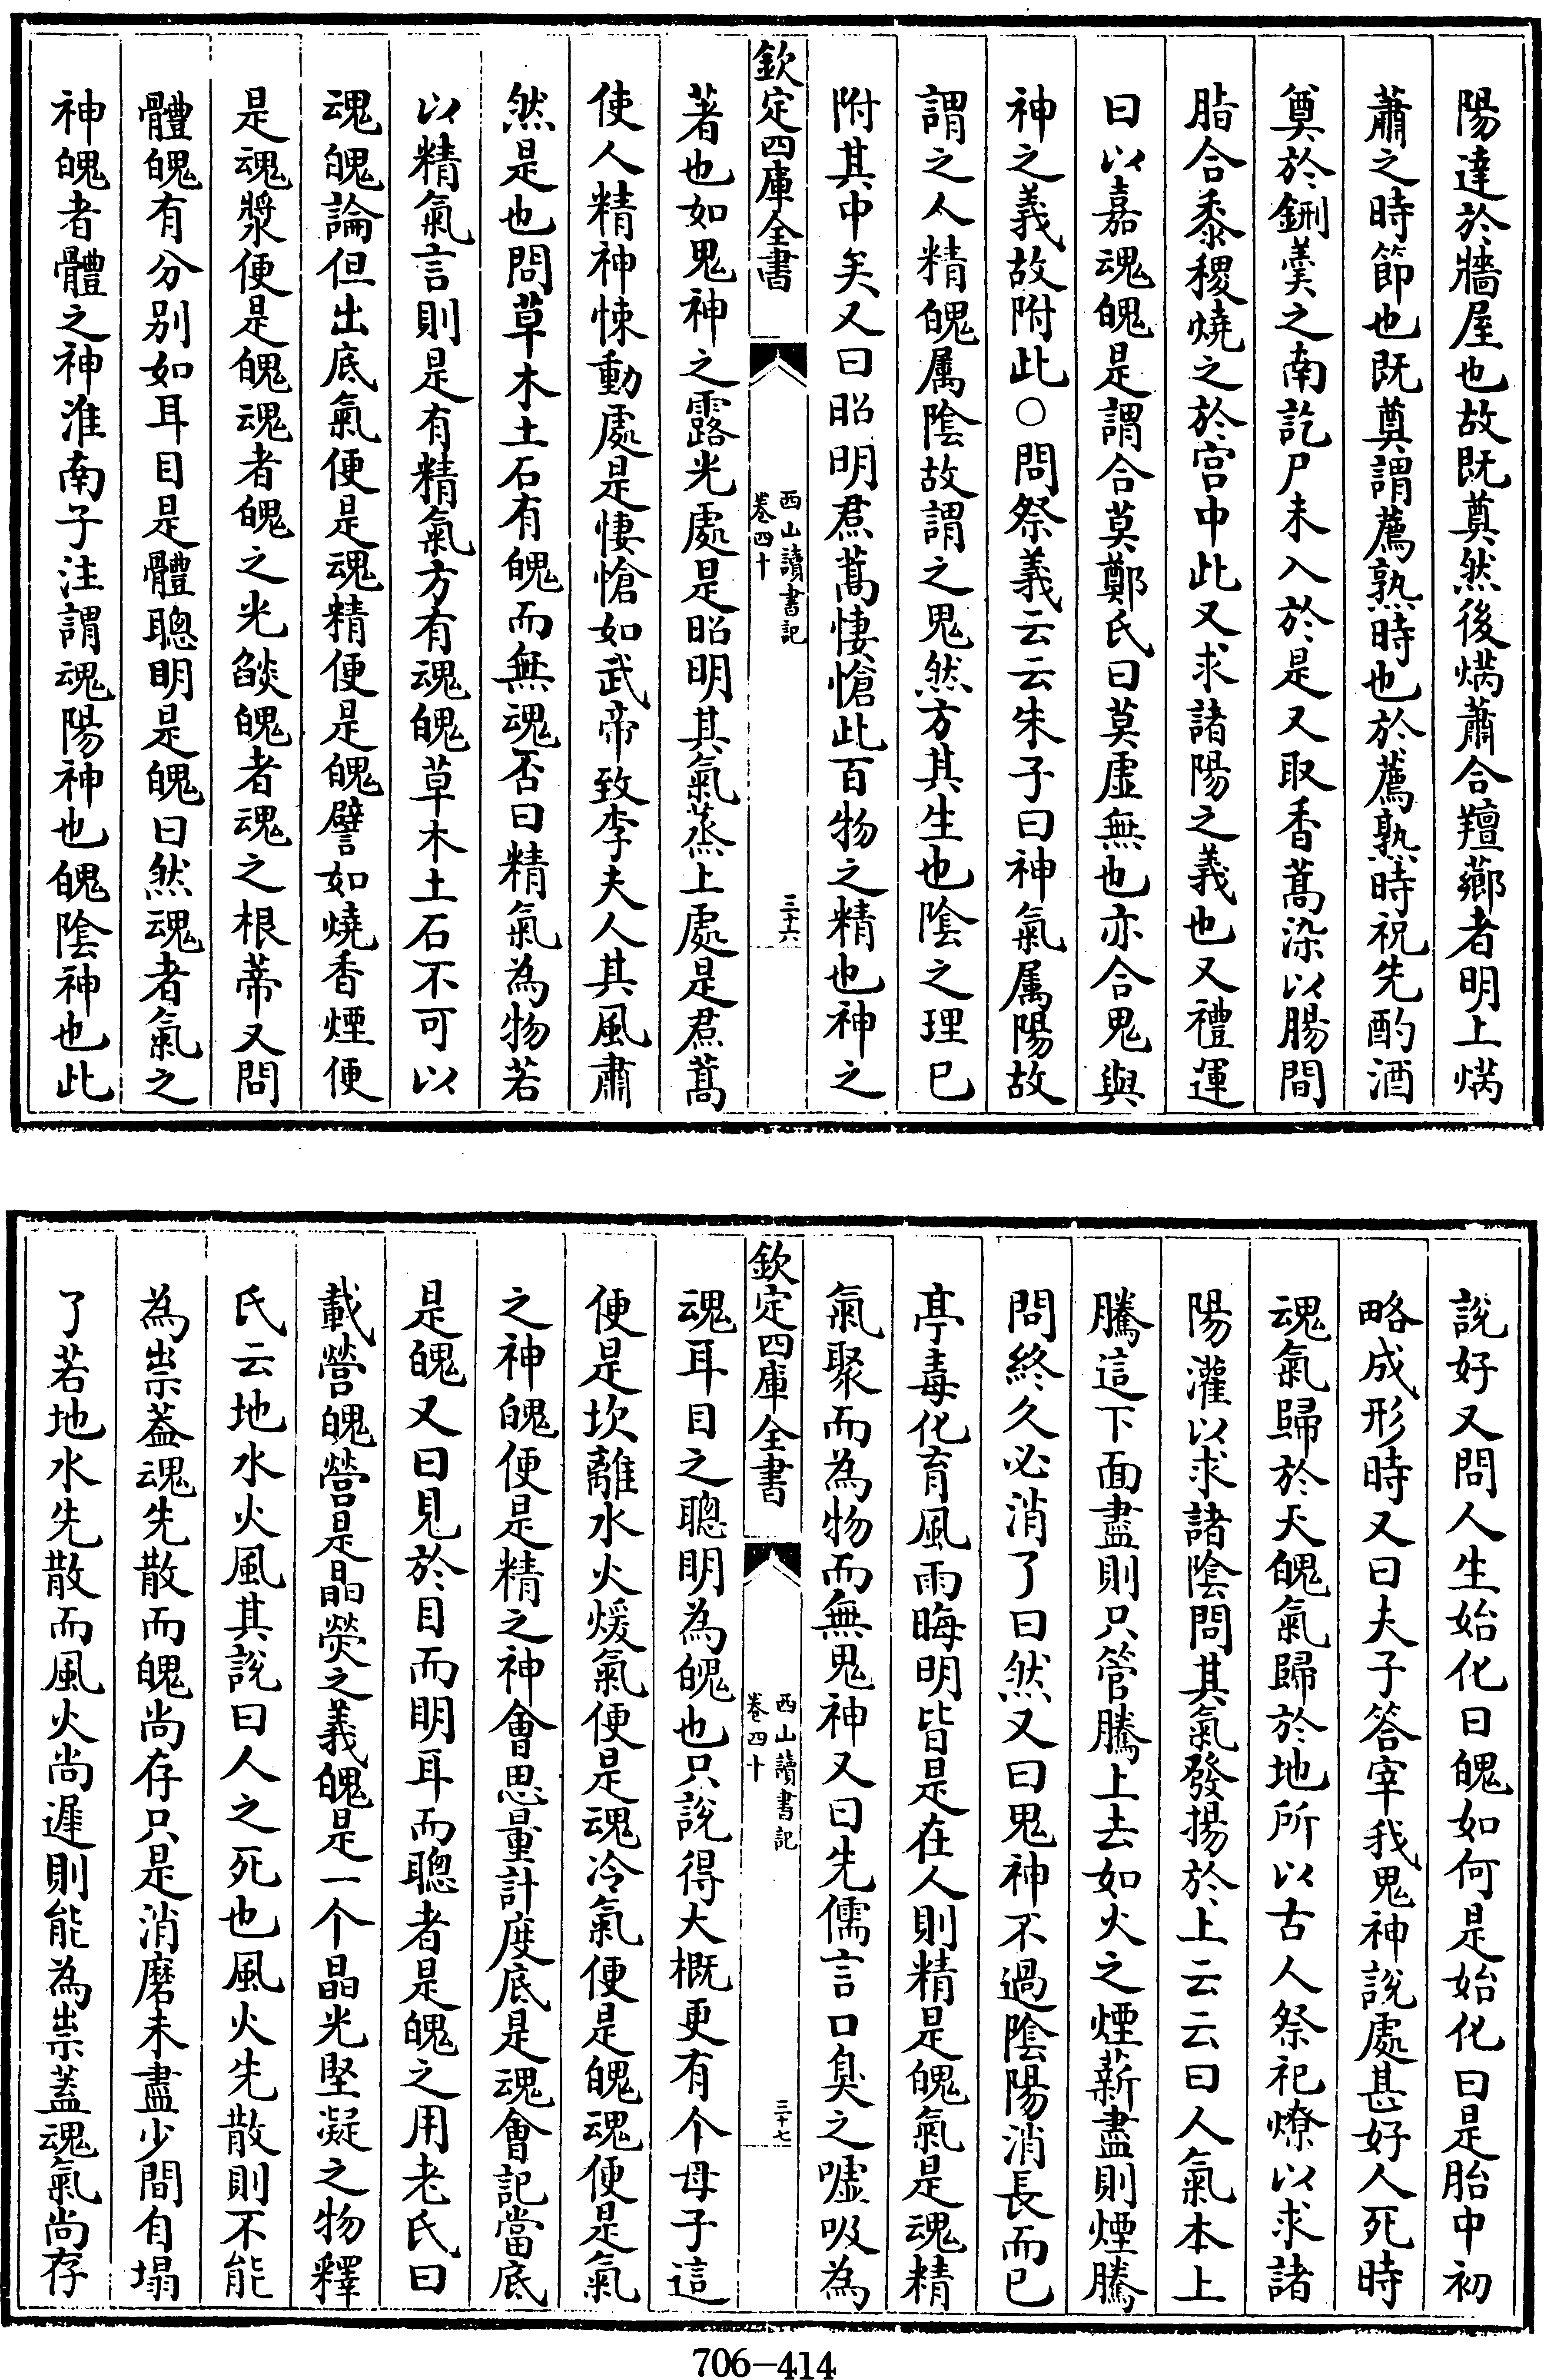 陽達於牆屋也故既奠然後焫蕭合羶薌者明上焫
蕭之時節也既奠謂薦熟時也於薦熟時祝先酌酒
奠於鉶羹之南訖尸未入於是又取香蒿染以腸間
脂合黍稷燒之於宫中此又求諸陽之義也又禮運
曰以嘉魂魄是謂合莫鄭氏曰莫虚無也亦合鬼與
神之義故附此○問祭義云云朱子曰神氣属陽故
謂之人精魄属陰故謂之鬼然方其生也陰之理已
附其中矣又曰昭明焄蒿悽愴此百物之精也神之
欽定四庫全書
西山讀書記
卷四十
三十六
著也如鬼神之露光處是昭明其氣蒸上處是焄蒿
使人精神悚動處是悽愴如武帝致李夫人其風肅
然是也問草木土石有魄而無魂否曰精氣為物若
以精氣言則是有精氣方有魂魄草木土石不可以
魂魄論但出底氣便是魂精便是魄譬如燒香煙便
是魂漿便是魄魂者魄之光燄魄者魂之根蒂又問
體魄有分别如耳目是體聰明是魄曰然魂者氣之
神魄者體之神淮南子注謂魂陽神也魄陰神也此
說好又問人生始化曰魄如何是始化曰是胎中初
略成形時又曰夫子答宰我鬼神說處甚好人死時
魂氣歸於天魄氣歸於地所以古人祭祀燎以求諸
陽灌以求諸陰問其氣發揚於上云云曰人氣本上
騰這下面盡則只管騰上去如火之煙薪盡則煙騰
問終久必消了曰然又曰鬼神不過陰陽消長而已
亭毒化育風雨晦明皆是在人則精是魄氣是魂精
氣聚而為物而無鬼神又曰先儒言口臭之嘘吸為
欽定四庫全書
西山讀書記
卷四十
三十七
魂耳目之聰明為魄也只說得大概更有个母子這
便是坎離水火煖氣便是魂冷氣便是魄魂便是氣
之神魄便是精之神會思量計度底是魂會記當底
是魄又曰見於目而明耳而聰者是魄之用老氏曰
載營魄營是晶熒之義魄是一个晶光堅凝之物釋
氏云地水火風其說曰人之死也風火先散則不能
為祟葢魂先散而魄尚存只是消磨未盡少間自塌
了若地水先散而風火尚遲則能為祟蓋魂氣尚存
706-414